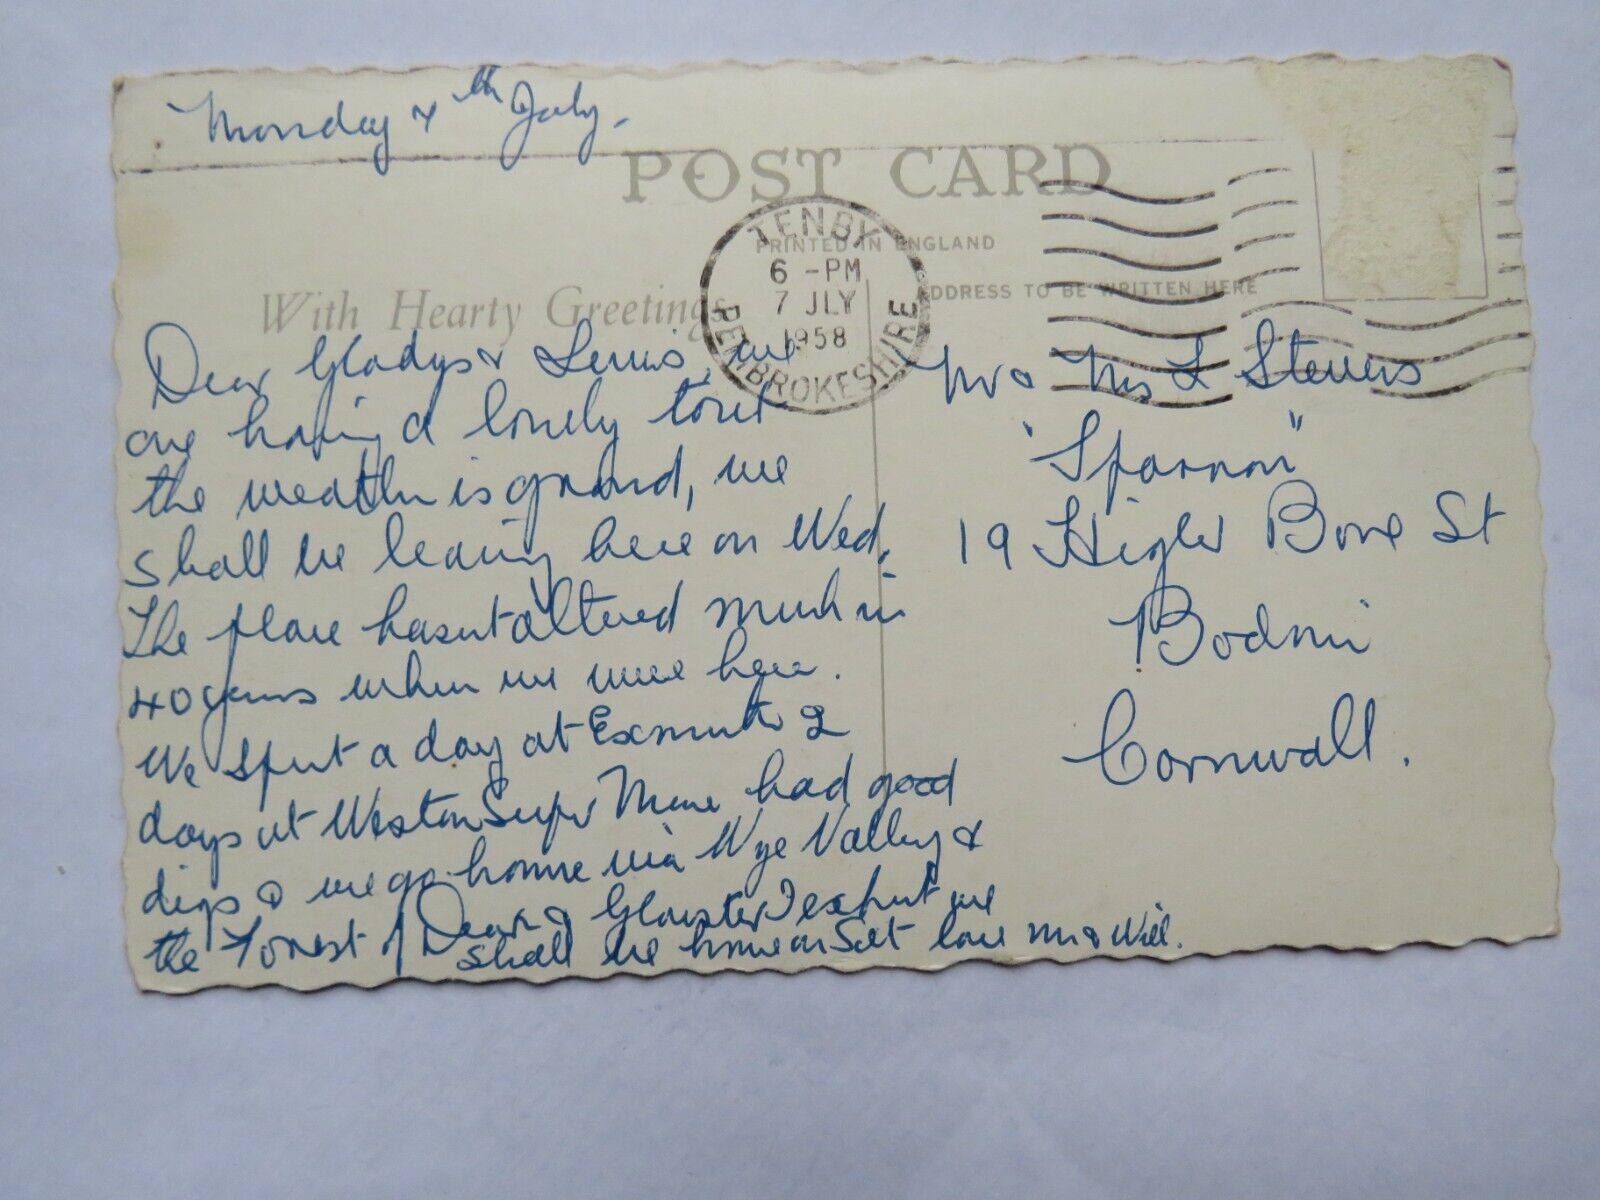 Monday 7th July.
POST CARD
PRINTED IN ENGLAND
ADDRESS TO BE WRITTEN HERE
With Hearty Greetings
TENBY
6 - PM
7 JLY
1958
PEMBROKESHIRE
Dear Gladys & Lewis, we
are having a lovely tour
the weather is grand, we
shall be leaving here on Wed.
The place hasnt altered much in
40 years when we were here.
We spent a day at Exmouth 2
days at Weston Super Mare had good
digs & we go home via Wye Valley &
the Forest of Dean & Glouster I expect we
shall be home on Sat love & Will.
Mr & Mrs L Stevens
"Sparnon"
19 Higher Bore St
Bodmin
Cornwall.